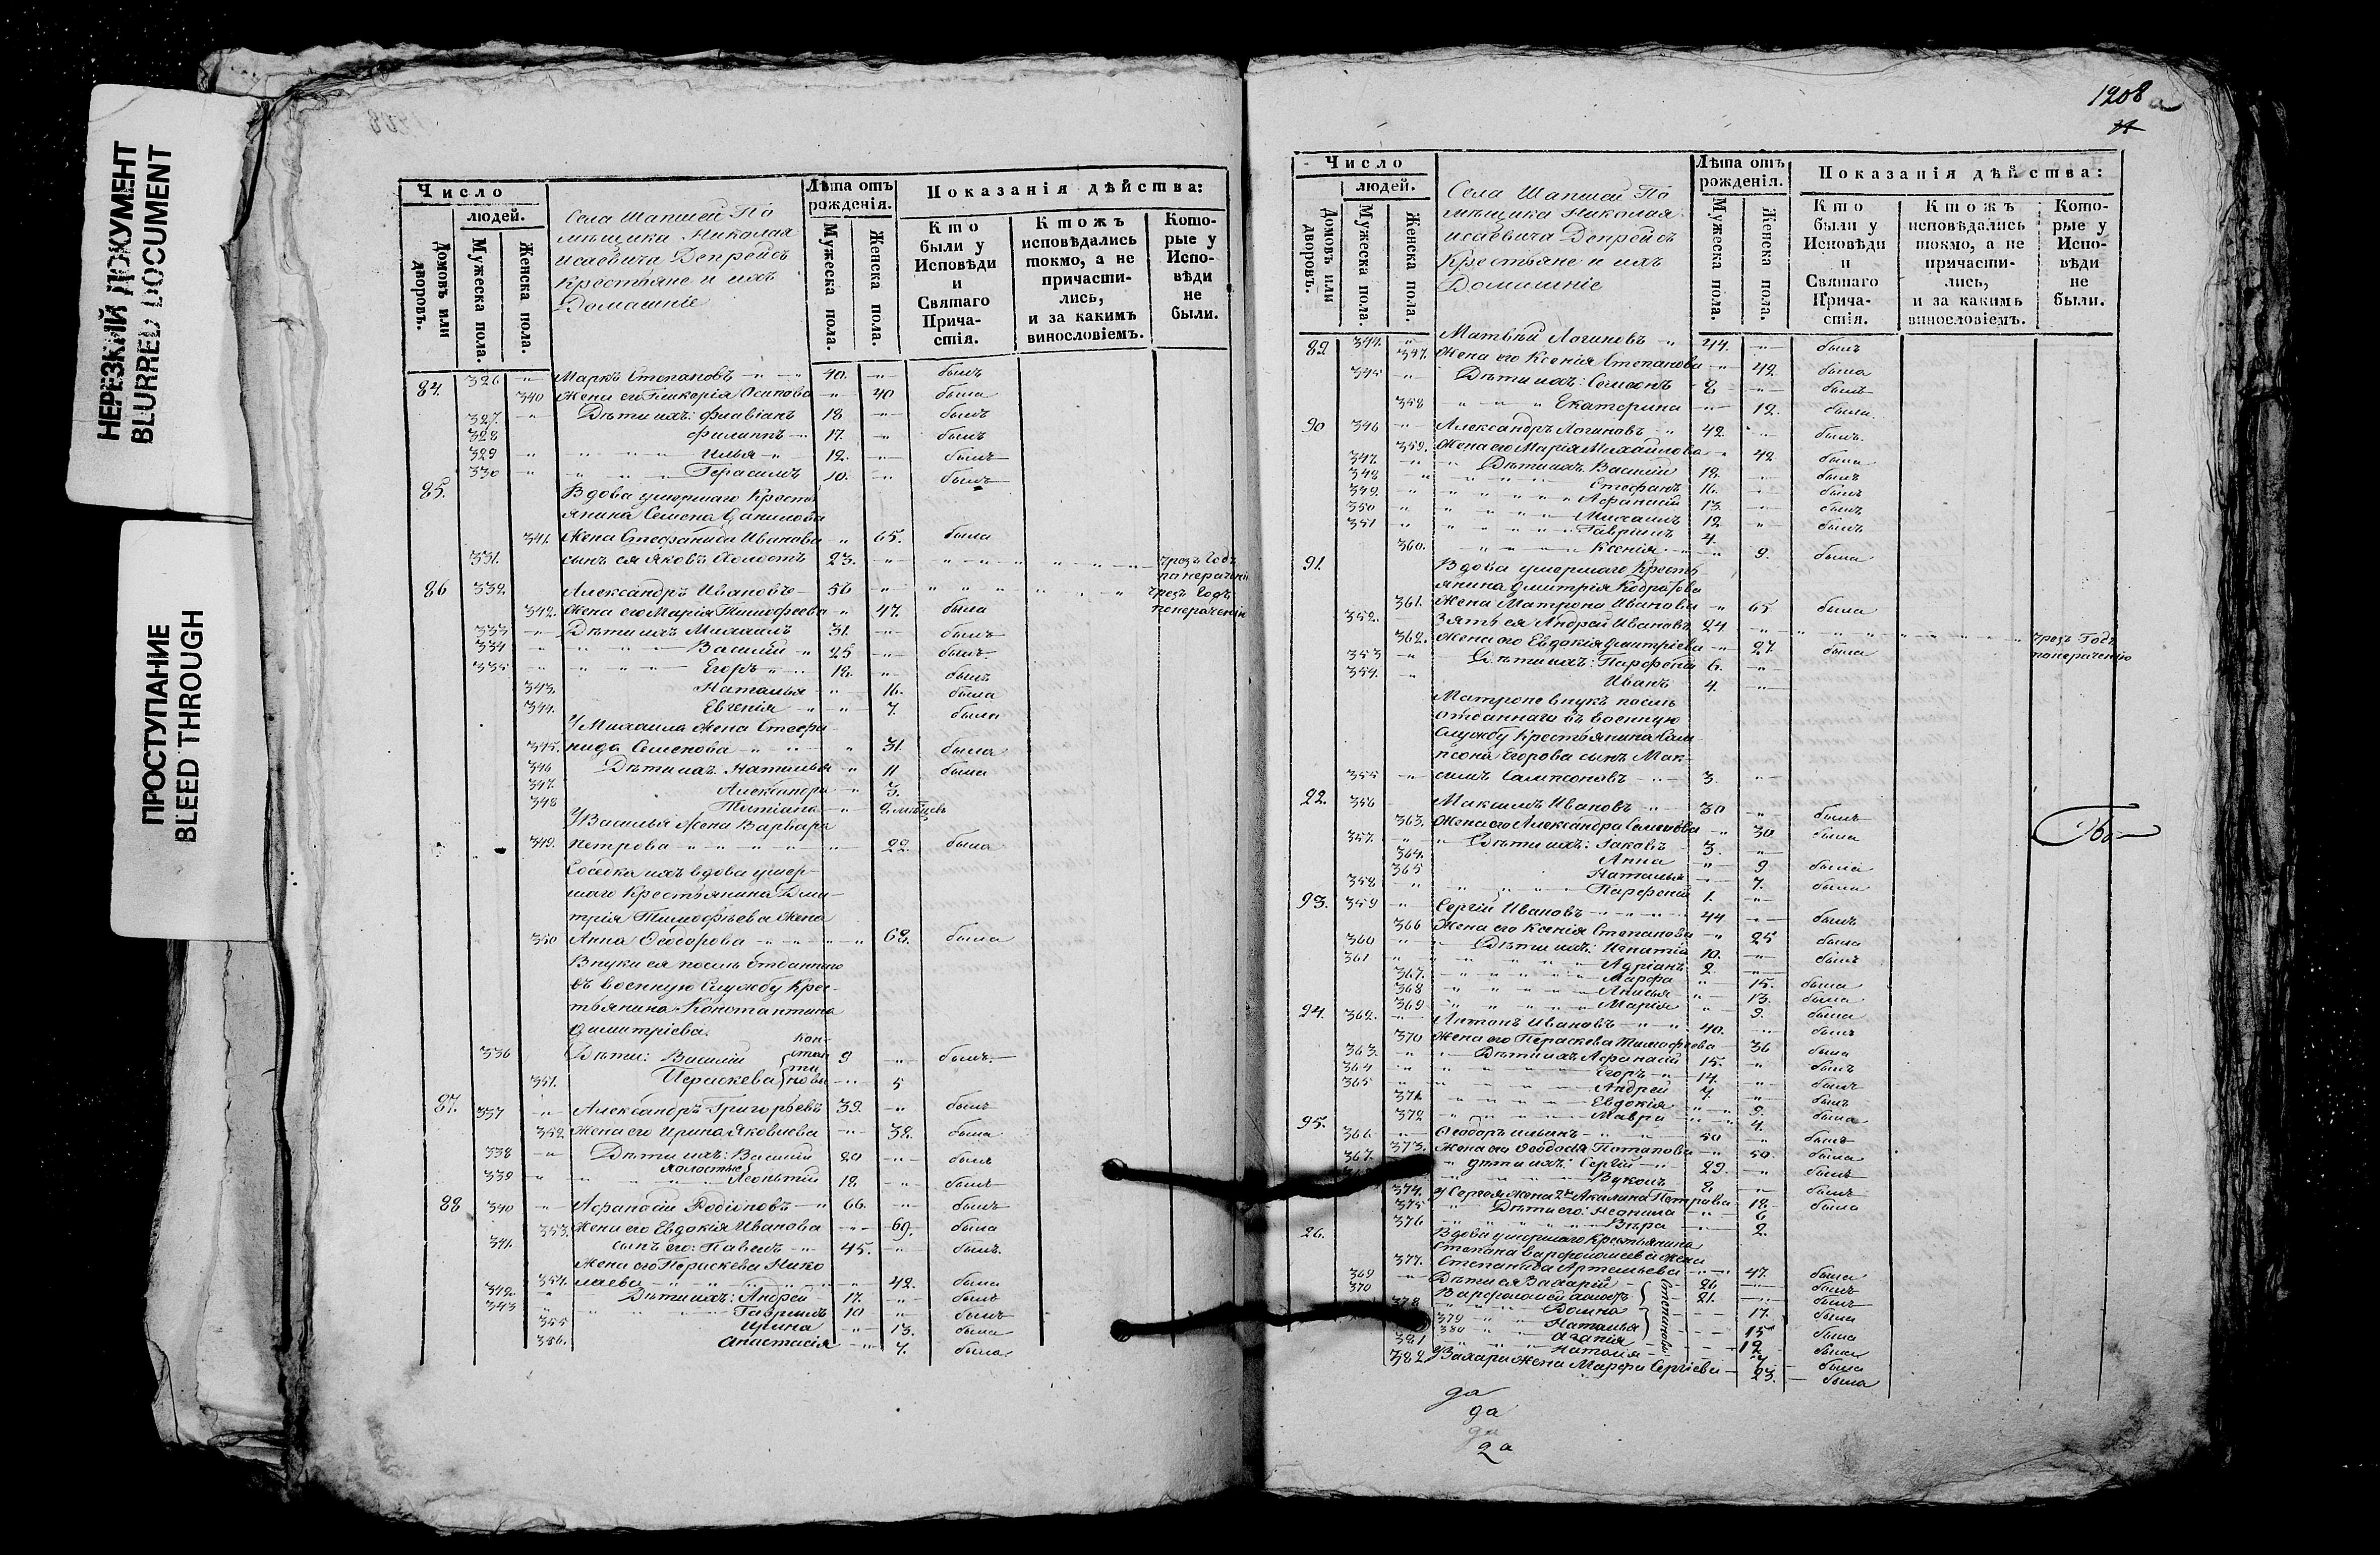 НЕРЕЗКИЙ ДОКУМЕНТ
BLURRED DOCUMENT
ПРОСТУПАНИЕ
BLEED THROUGH
Число
людей.
Домовъ или дворовъ.
Мужеска пола.
Женска пола.
Села Шапшей По
мѣщика Николая
Исаевича Депрейсъ
Крестьяне и ихъ
Домашніе
Лѣта отъ рожденія.
Мужеска пола.
Женска пола.
Показанія дѣйства:
Кто были у Исповѣди и Святаго Прича- стія.
Ктожъ исповѣдались токмо, а не причасти- лись, и за какимъ винословіемъ.
Кото- рые у Испо- вѣди не были.
84. 326 Маркъ Степановъ 40. былъ
340 Жена его Гликерія Осипова 40 была
327. Дѣти ихъ: Флавіанъ 18 былъ
328 Филиппъ 17. былъ
329 Илья 12. былъ
330 Герасимъ 10. былъ
85. Вдова умершаго Кресть
янина Семена Данилова
341. Жена Стефанида Иванова 65. была
331. сынъ ея Яковъ Холостъ 23. чрезъ Годъ
86 332. Александръ Ивановъ 56 чрезъ Годъ
342. Жена его Марія Тимофеева 47. была
333 Дѣти ихъ Михаилъ 31. былъ
334 Василій 25 былъ.
335 Егоръ 18. былъ
343. Наталья 16. была
344. Евгенія 7. была
У Михаила жена Стефа
345. нида Семенова 31. была
346 Дѣти ихъ. Наталья 11 была
347. Александра 3.
348 Татіана
У Василья Жена Варвара
349. Петрова 22. была
Соседка ихъ вдова умер-
шаго Крестьянина Дми-
трія Тимофѣева Жена
350 Анна Ѳеодорова 62. была
Внуки ея послѣ отданнаго
въ военную Службу Крес-
тьянина Константина
Димитріева.
336 Дѣти: Василій 9 былъ.
351. Параскева 5
Кон- стан ти новы
87. 337 Александръ Григорьевъ 39. былъ
352 Жена его Ирина Яковлева 38. была
338 Дѣти ихъ: Василій 20 былъ
холостые
339 Леонтій 18. былъ
88 340 Афанасій Родіоновъ 66. былъ
353. Жена его Евдокія Иванова 69. была
341. сынъ его: Павелъ 45. былъ.
Жена его Параскева Нико
354. лаева 42. была
342. Дѣти ихъ: Андрей 17. былъ
343 Гавріилъ 10 былъ
355 Ирина 13. была
356. Анастасія 7. была
1208
Число
людей.
Домовъ или дворовъ.
Мужеска пола.
Женска пола.
Села Шапшей По
мѣщика Николая
Исаевича Депрейсъ
Крестьяне и ихъ
Домашніе
Лѣта отъ рожденія.
Мужеска пола.
Женска пола.
Показанія дѣйства:
Кто были у Исповѣди и Святаго Прича- стія.
Ктожъ исповѣдались токмо, а не причасти- лись, и за какимъ винословіемъ.
Кото- рые у Испо- вѣди не были.
89 344. Матвѣй Логиновъ 44. былъ
357. Жена его Ксенія Степанова 42 была
345 Дѣти ихъ: Симеонъ 8 былъ
358 Екатерина 12. была
90 346 Александръ Логиновъ 42. былъ.
359. Жена его Марія Михайлова 42 была
347. Дѣти ихъ. Василій 18. былъ
348 Стефанъ 16. былъ
349. Афанасій 13. былъ
350 Михаилъ 12 былъ
351 Гавріилъ 4.
360. Ксенія 9. была
91. Вдова умершаго Кресть
янина Димитрія
361. Жена Матрона Иванова 65 была
352. Зять ея Андрей Ивановъ 24 чрезъ Годъ
362. Жена его Евдокія Дмитріева 27 была
353 Дѣти ихъ: Парфеній 6.
354. Иванъ 4.
Матроне внукъ послѣ
отданнаго въ военную
Службу Крестьянина Сам
псона Егорова сынъ Мак-
355 симъ Сампсоновъ 3.
92. 356 Максимъ Ивановъ 30 былъ
363. Жена его Александра Семенова 30 была
357. Дѣти ихъ: Іаковъ 3.
364. Анна 9 была
365 Наталья 7. была
358 Парфеній 1.
93. 359 Сергій Ивановъ 44 былъ
366 Жена его Ксенія Степанова 25 была
360 Дѣти ихъ: Игнатій 10. былъ
361 Адріанъ 2
367. Марфа 15. была
368 Анисья 13. была
369 Марія 9. была
94. 362. Антонъ Ивановъ 40. былъ
370 Жена его Параскева Тимофеева 36 была
363. Дѣти ихъ Афанасій 15. былъ
364 Егоръ 14. былъ
365 Андрей 7. былъ
371 Евдокія 9. была
372 Мавра 4.
95. 366 Ѳеодоръ Ильинъ 50 былъ
373. Жена его Ѳеодосія Потапова 50. была
367. Дѣти ихъ: Сергій 29. былъ
Вуколъ 8 былъ
374. У Сергея жена Акилина Петрова 18 была
375 Дѣти его: 6
376 Вѣра 2.
96. Вдова умершаго Крестьянина
Степана Варфоломеева Жена
377. Степанида Артемьева 47. была
369 Дѣти ея Захарій 26 былъ
370 Варфоломей холостъ 21. былъ
378 Домна 17. была
379 Наталья 15 была
380 Агафія 12 была
381 Наталія 7 была
Степановы
382. У Захара жена Марфа Сергіева 23. была
да
да
да
2 а